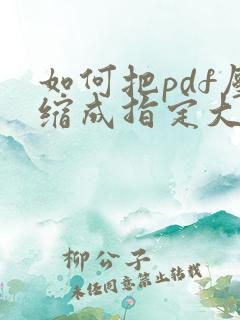 如何把pdf压
缩成指定大
柳公子
未经同意禁止转载